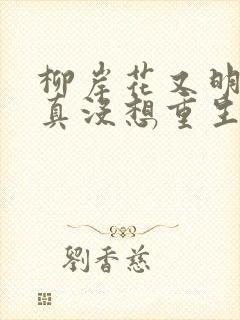 柳岸花又明
真没想重生
劉香慈